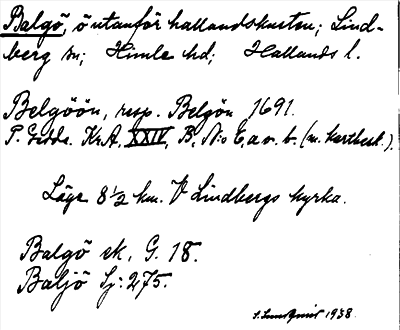 Balgö, ö utanför hallandskusten; Lind-
berg sn; Himle hd; Hallands l.
Belgöön, resp. Belgön 1691.
P. Gedda. KrA, XXIV, B, N:o 6, a o. b. (m. kartbeskr.).
Läge 8 1/2 km. V Lindbergs kyrka.
Balgö ek, G. 18.
Baljö Sj: 275.
1938.